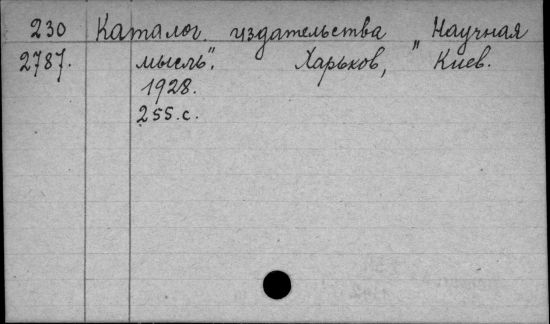 230 Каталог издательства „Научная
2787. мысль". Харьков, Киев.
1928.
255.с.